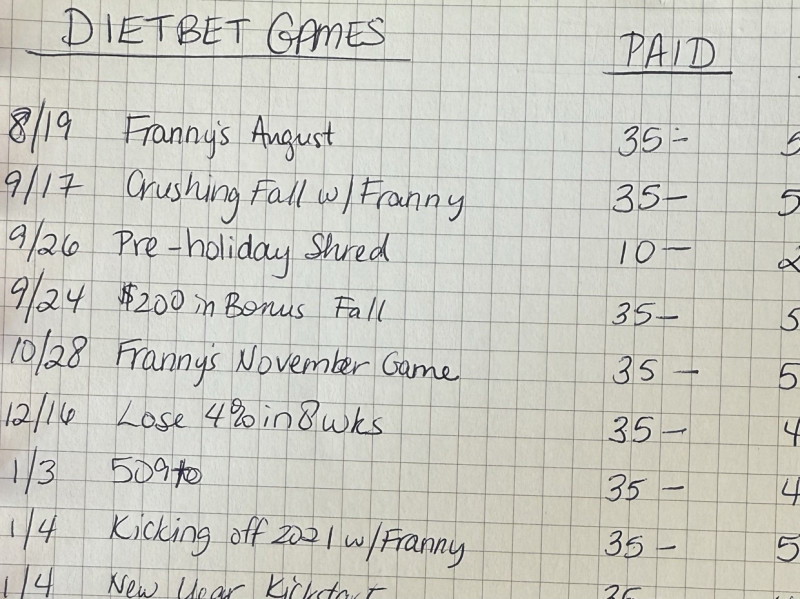 DIETBET GAMES PAID
8/19 Franny's August 35- 5
9/17 Crushing Fall w/Franny 35- 5
9/26 Pre-holiday Shred 10- 2
9/24 $200 in Bonus Fall 35- 5
10/28 Franny's November Game 35- 5
12/16 Lose 4% in 8 wks 35- 4
1/3 35- 4
1/4 Kicking off 2021 w/Franny 35- 5
1/4 New Year Kickstart 35